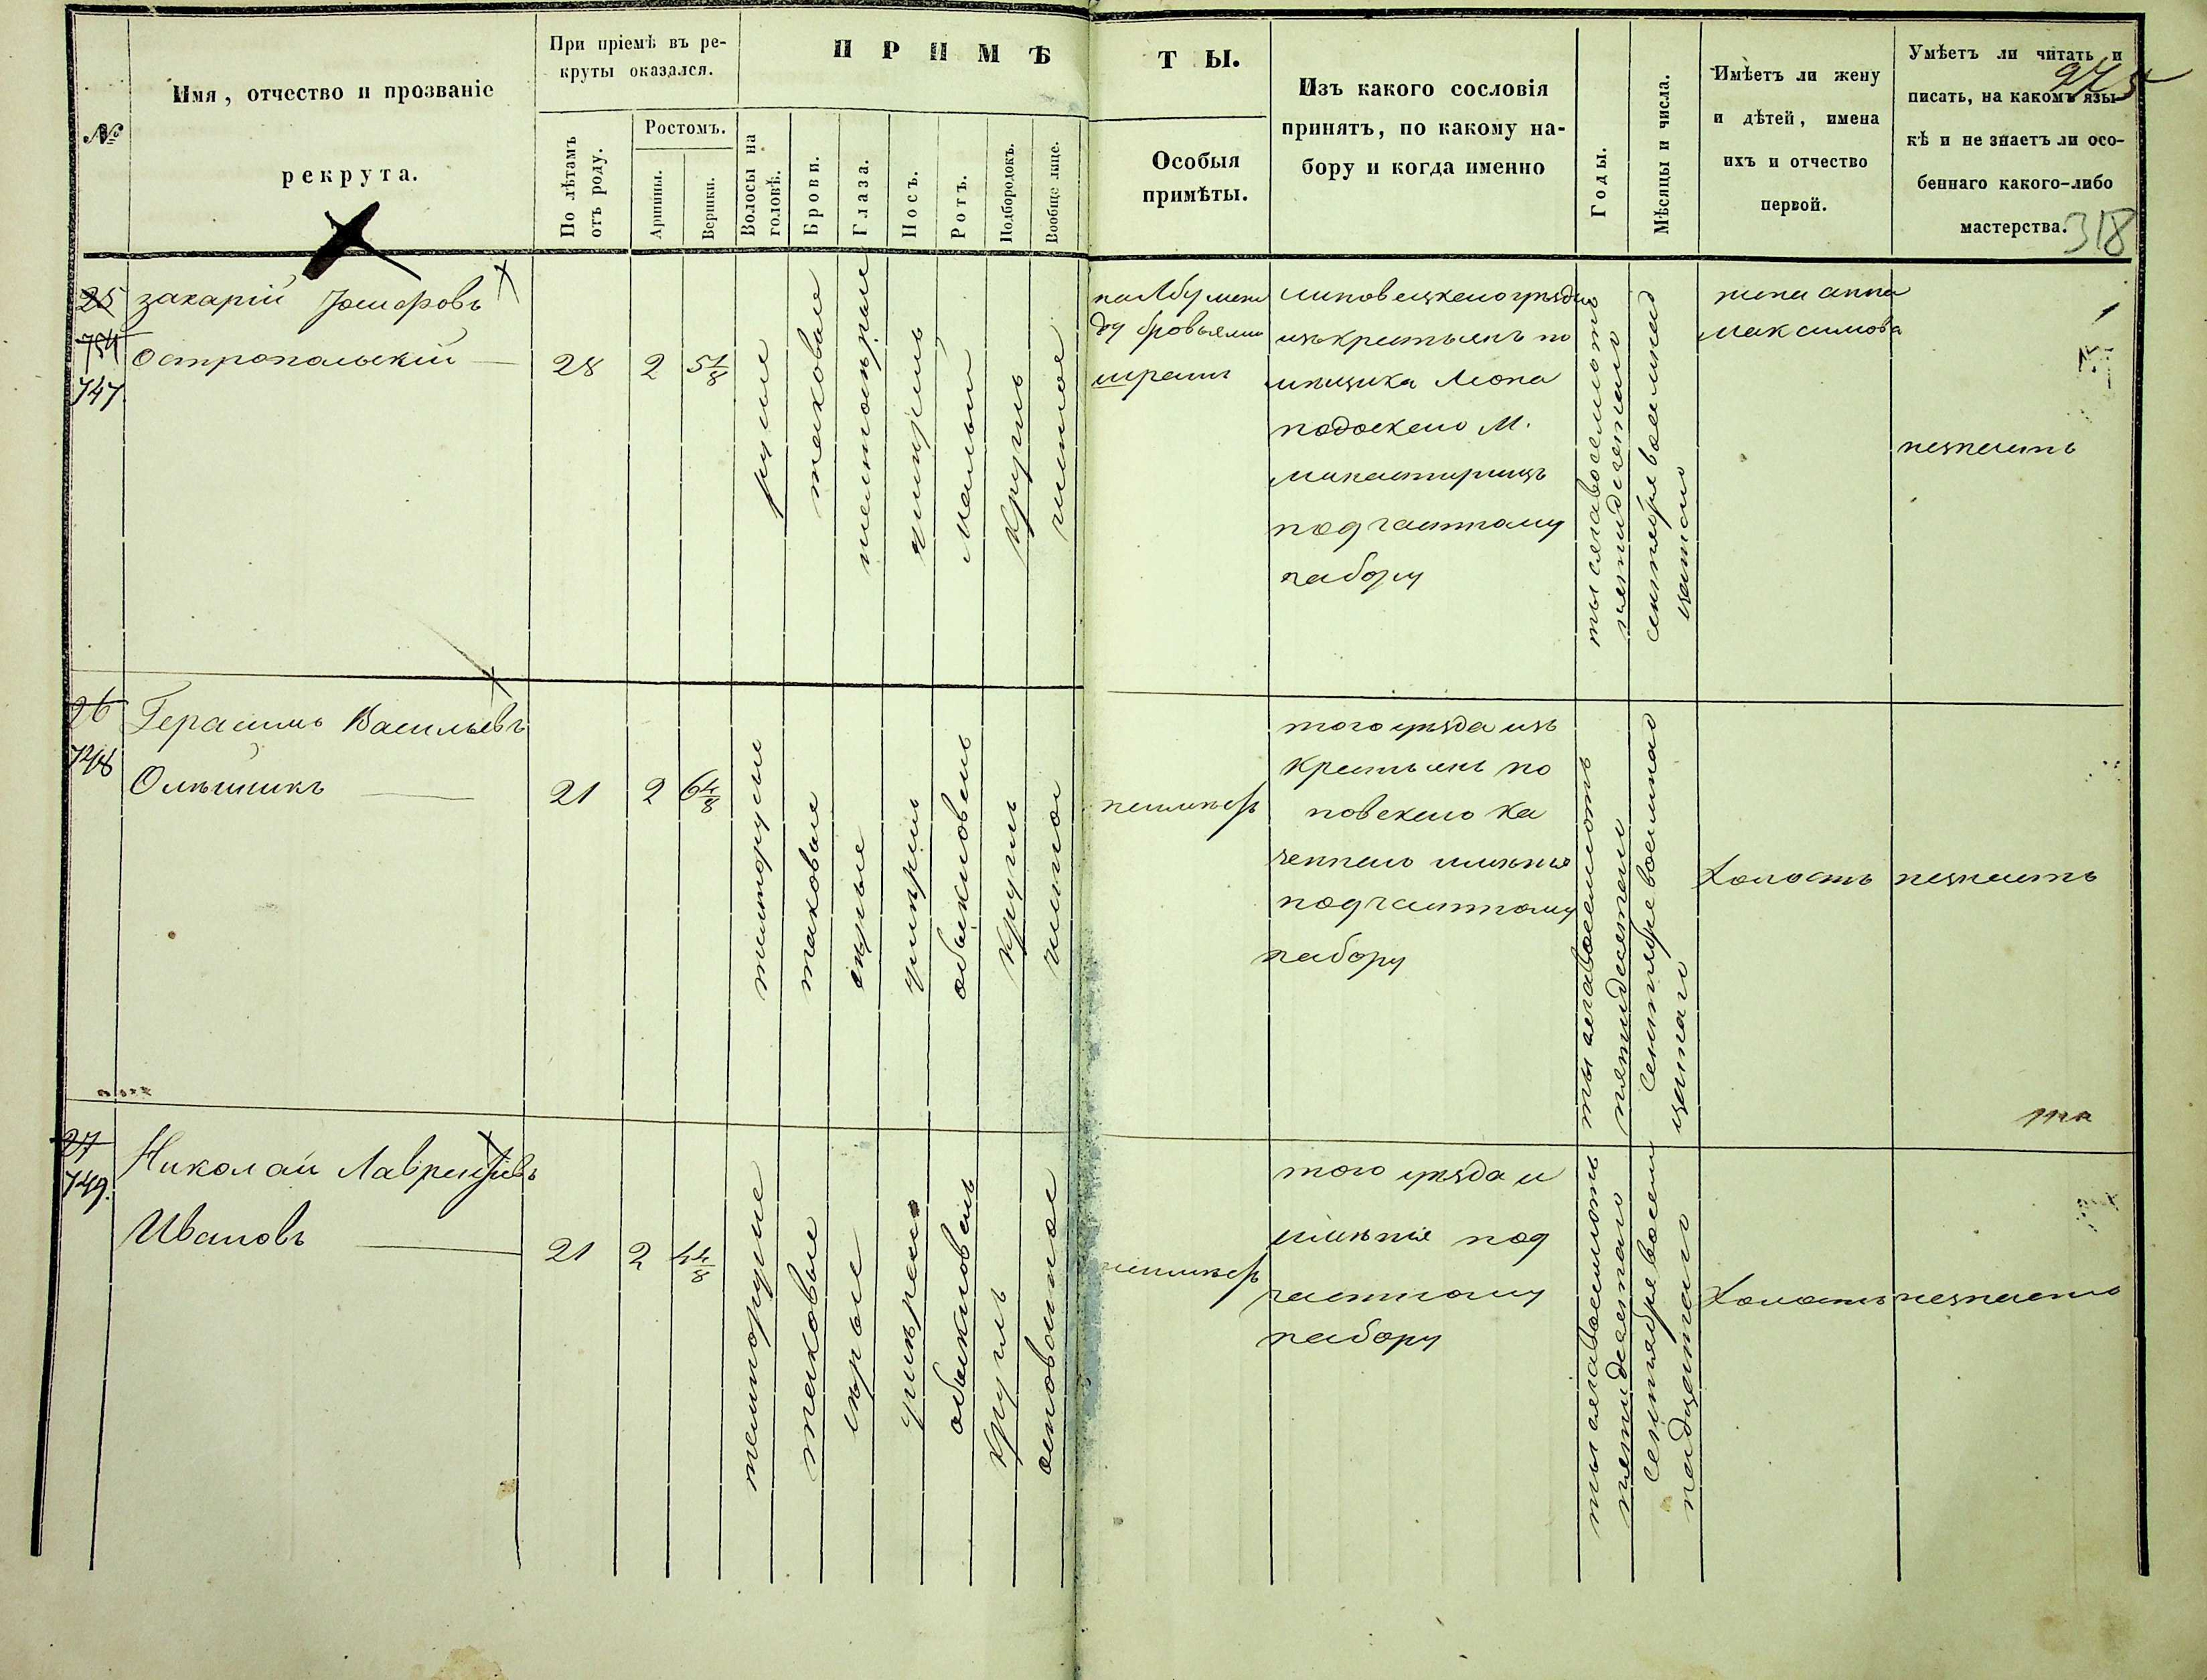 275
318
№
Имя, отчество и прозваніе
рекрута.
При пріемѣ въ ре-
круты оказался.
По лѣтамъ
отъ роду.
Ростомъ.
Аршины.
Вершки.
ПРИМѢТЫ.
Волосы на
головѣ.
Брови.
Глаза.
Носъ.
Ротъ.
Подбородокъ.
Вообще лице.
Особыя
примѣты.
Изъ какого сословія
принятъ, по какому на-
бору и когда именно
Годы.
Мѣсяцы и числа.
Имѣетъ ли жену
и дѣтей, имена
ихъ и отчество
первой.
Умѣетъ ли читать и
писать, на какомъ язы-
кѣ и не знаетъ ли осо-
беннаго какого-либо
мастерства.
25
747
захарій
Остропольскій
28
2
5 1/8
русые
таковые
малый
круглъ
чистое
на лбу меж
ду бровьями
шрамъ
липовецкаго уѣзда
изъ крестьянъ по
мѣщика
М.
монастырищъ
под частному
набору
тысяча восемьсотъ
пятидесятаго
сентября восемнад
цатаго
жена анна
максимова
незнаетъ
26
748
Герасимъ Васильевъ
Олѣйникъ
21
2
6 4/8
темнорусые
таковые
сѣрые
обыкновенъ
круглъ
чистое
неимѣетъ
того уѣзда изъ
крестьянъ по
повскаго ка
зеннаго имѣнія
под частному
набору
тысяча восемьсотъ
пятидесятаго
Сентября восемнад
цатаго
Холостъ
незнаетъ
27
749.
Николай Лаврентіевъ
Ивановъ
21
2
4 4/8
темнорусые
таковые
сѣрые
обыкновенъ
круглъ
осповатое
неимѣетъ
того уѣзда и
имѣнія под
частному
набору
тысяча восемьсотъ
пятидесятаго
Сентября восем
надцатаго
Холостъ
незнаетъ